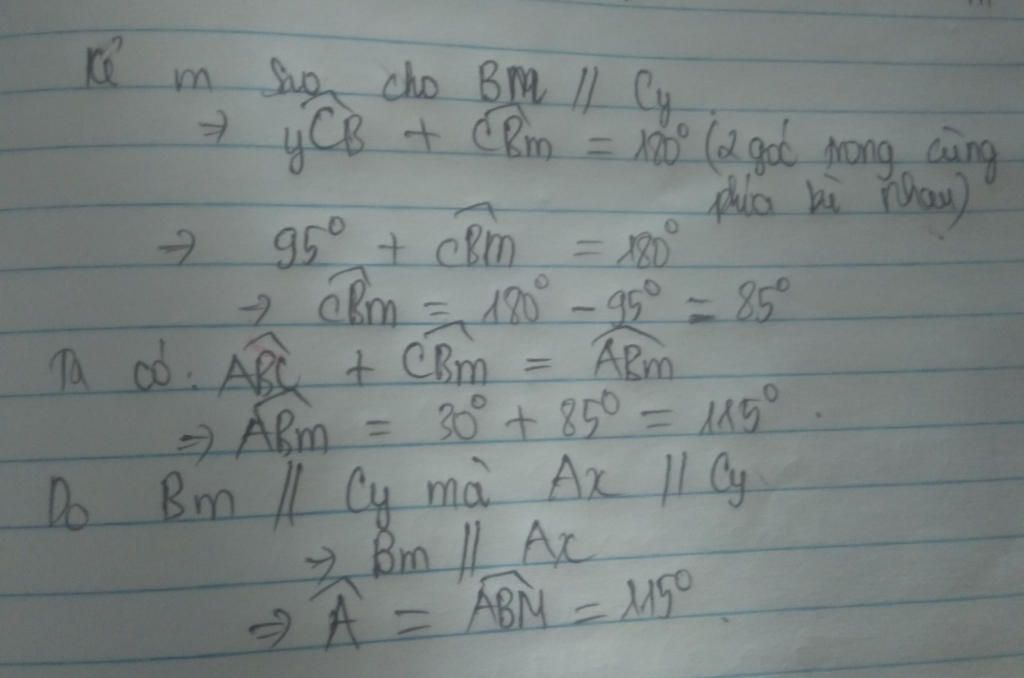 Kẻ m sao cho Bm // Cy.
⇒ yCB + CBm = 180° (2 góc trong cùng
phía bù nhau)
⇒ 95° + CBm = 180°
⇒ CBm = 180° - 95° = 85°
Ta có: ABC + CBm = ABm
⇒ ABm = 30° + 85° = 115°.
Do Bm // Cy mà Ax // Cy
⇒ Bm // Ax
⇒ A = ABM = 115°.